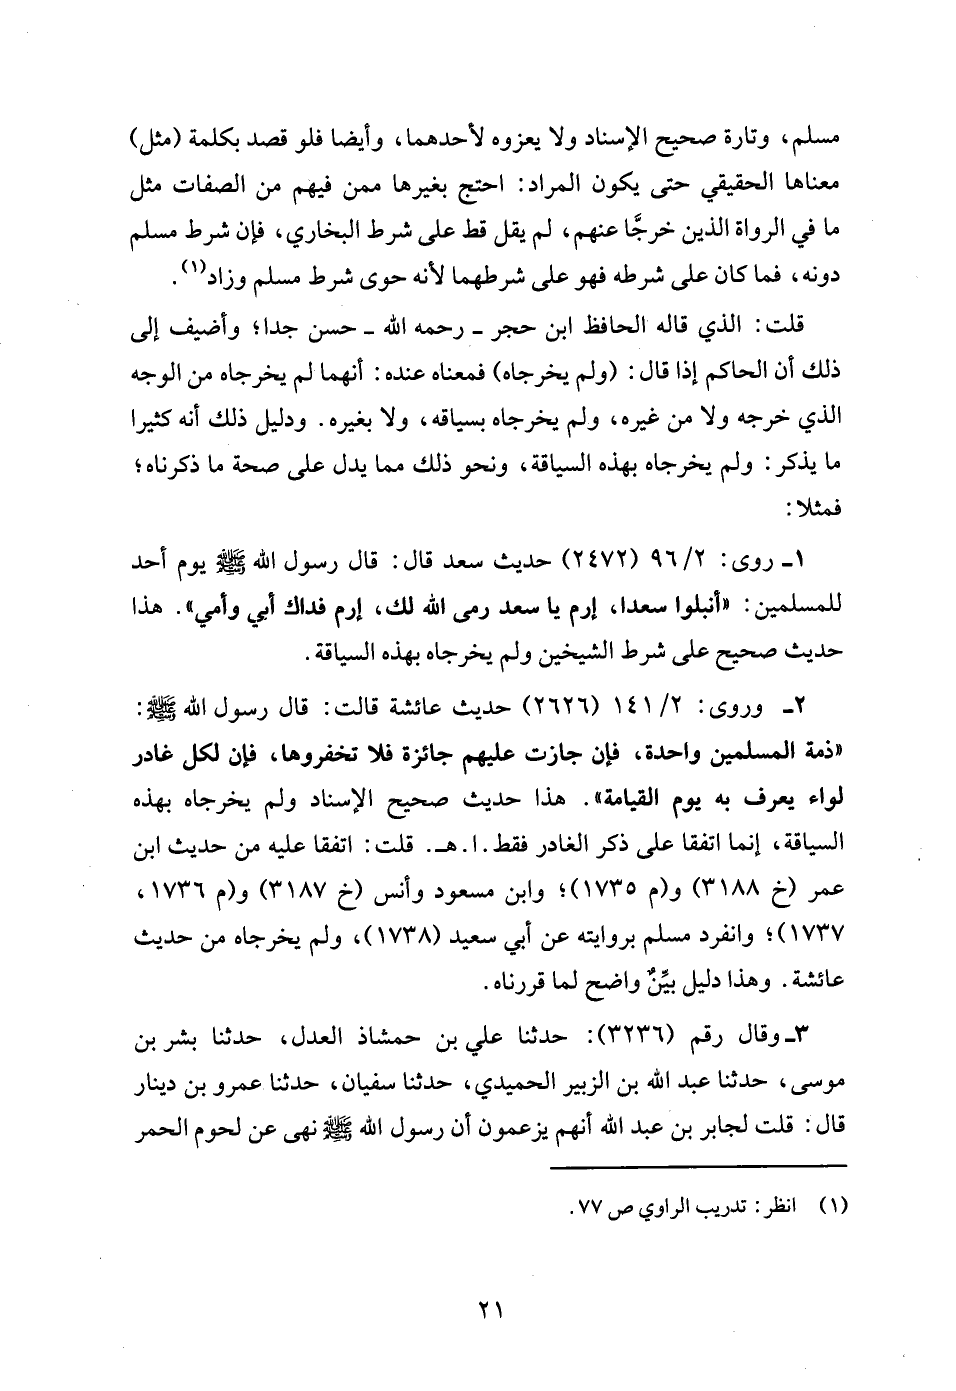 مسلم، وتارة صحيح الإسناد ولا يعزوه لأحدهما، وأيضا فلو قصد بكلمة (مثل)
معناها الحقيقي حتى يكون المراد: احتج بغيرها ممن فيهم من الصفات مثل
ما في الرواة الذين خرجَّا عنهم، لم يقل قط على شرط البخاري، فإن شرط مسلم
دونه، فما كان على شرطه فهو على شرطهما لأنه حوى شرط مسلم وزاد(١).
قلت: الذي قاله الحافظ ابن حجر ـ رحمه الله ـ حسن جدا؛ وأضيف إلى
ذلك أن الحاكم إذا قال: (ولم يخرجاه) فمعناه عنده: أنهما لم يخرجاه من الوجه
الذي خرجه ولا من غيره، ولم يخرجاه بسياقه، ولا بغيره. ودليل ذلك أنه كثيرا
ما يذكر: ولم يخرجاه بهذه السياقة، ونحو ذلك مما يدل على صحة ما ذكرناه؛
فمثلا:
١ـ روى: ٩٦/٢ (٢٤٧٢) حديث سعد قال: قال رسول الله ﷺ يوم أحد
للمسلمين: «أنبلوا سعدا، إرم يا سعد رمى الله لك، إرم فداك أبي وأمي». هذا
حديث صحيح على شرط الشيخين ولم يخرجاه بهذه السياقة.
٢ـ وروى: ١٤١/٢ (٢٦٢٦) حديث عائشة قالت: قال رسول الله ﷺ:
«ذمة المسلمين واحدة، فإن جازت عليهم جائزة فلا تخفروها، فإن لكل غادر
لواء يعرف به يوم القيامة». هذا حديث صحيح الإسناد ولم يخرجاه بهذه
السياقة، إنما اتفقا على ذكر الغادر فقط.ا.هـ. قلت: اتفقا عليه من حديث ابن
عمر (خ ٣١٨٨) و(م ١٧٣٥)؛ وابن مسعود وأنس (خ ٣١٨٧) و(م ١٧٣٦،
١٧٣٧)؛ وانفرد مسلم بروايته عن أبي سعيد (١٧٣٨)، ولم يخرجاه من حديث
عائشة. وهذا دليل بيِّنٌ واضح لما قررناه.
٣ـ وقال رقم (٣٢٣٦): حدثنا علي بن حمشاذ العدل، حدثنا بشر بن
موسى، حدثنا عبد الله بن الزبير الحميدي، حدثنا سفيان، حدثنا عمرو بن دينار
قال: قلت لجابر بن عبد الله أنهم يزعمون أن رسول الله ﷺ نهى عن لحوم الحمر
(١) انظر: تدريب الراوي ص ٧٧.
٢١